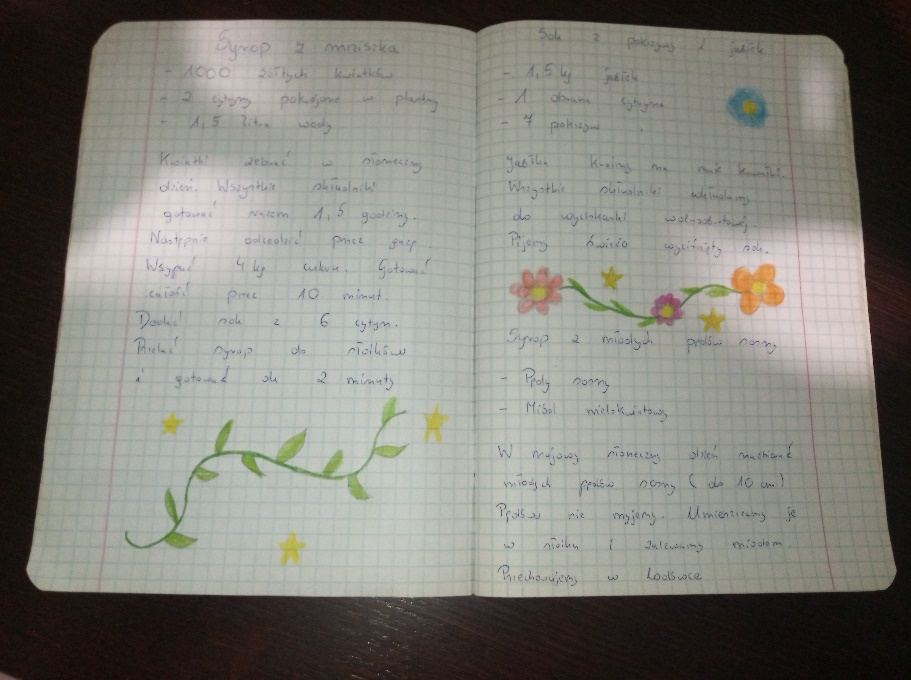 Syrop z mniszka
- 1000 żółtych kwiatków
- 2 cytryny pokrojone w plastry
- 1,5 litra wody
Kwiatki zebrać w słoneczny
dzień. Wszystkie składniki
gotować razem 1,5 godziny.
Następnie odcedzić przez gazę.
Wsypać 4 kg cukru. Gotować
całość przez 10 minut.
Dodać sok z 6 cytryn.
Przelać syrop do słoików
i gotować ok 2 minuty
Sok z pokrzywy i jabłek
- 1,5 kg jabłek
- 1 obrana cytryna
- 7 pokrzyw
Jabłka kroimy na małe kawałki.
Wszystkie składniki wkładamy
do wyciskarki wolnoobrotowej
Pijemy świeżo wyciśnięty sok.
Syrop z młodych pędów sosny
- Pędy sosny
- Miód wielokwiatowy
W majowy słoneczny dzień nazbierać
młodych pędów sosny (do 10 cm)
Pędów nie myjemy. Umieszczamy je
w słoiku i zalewamy miodem.
Przechowujemy w lodówce